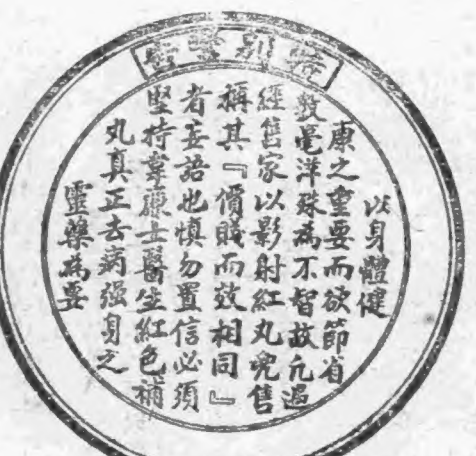 特別警告
以身體健
康之重要而欲節省
數毫洋殊為不智故凡遇
經售家以影射紅丸兜售
稱其『價賤而效相同』
者妄語也慎勿置信必須
堅持韋廉士醫生紅色補
丸真正去病强身之
靈藥為要